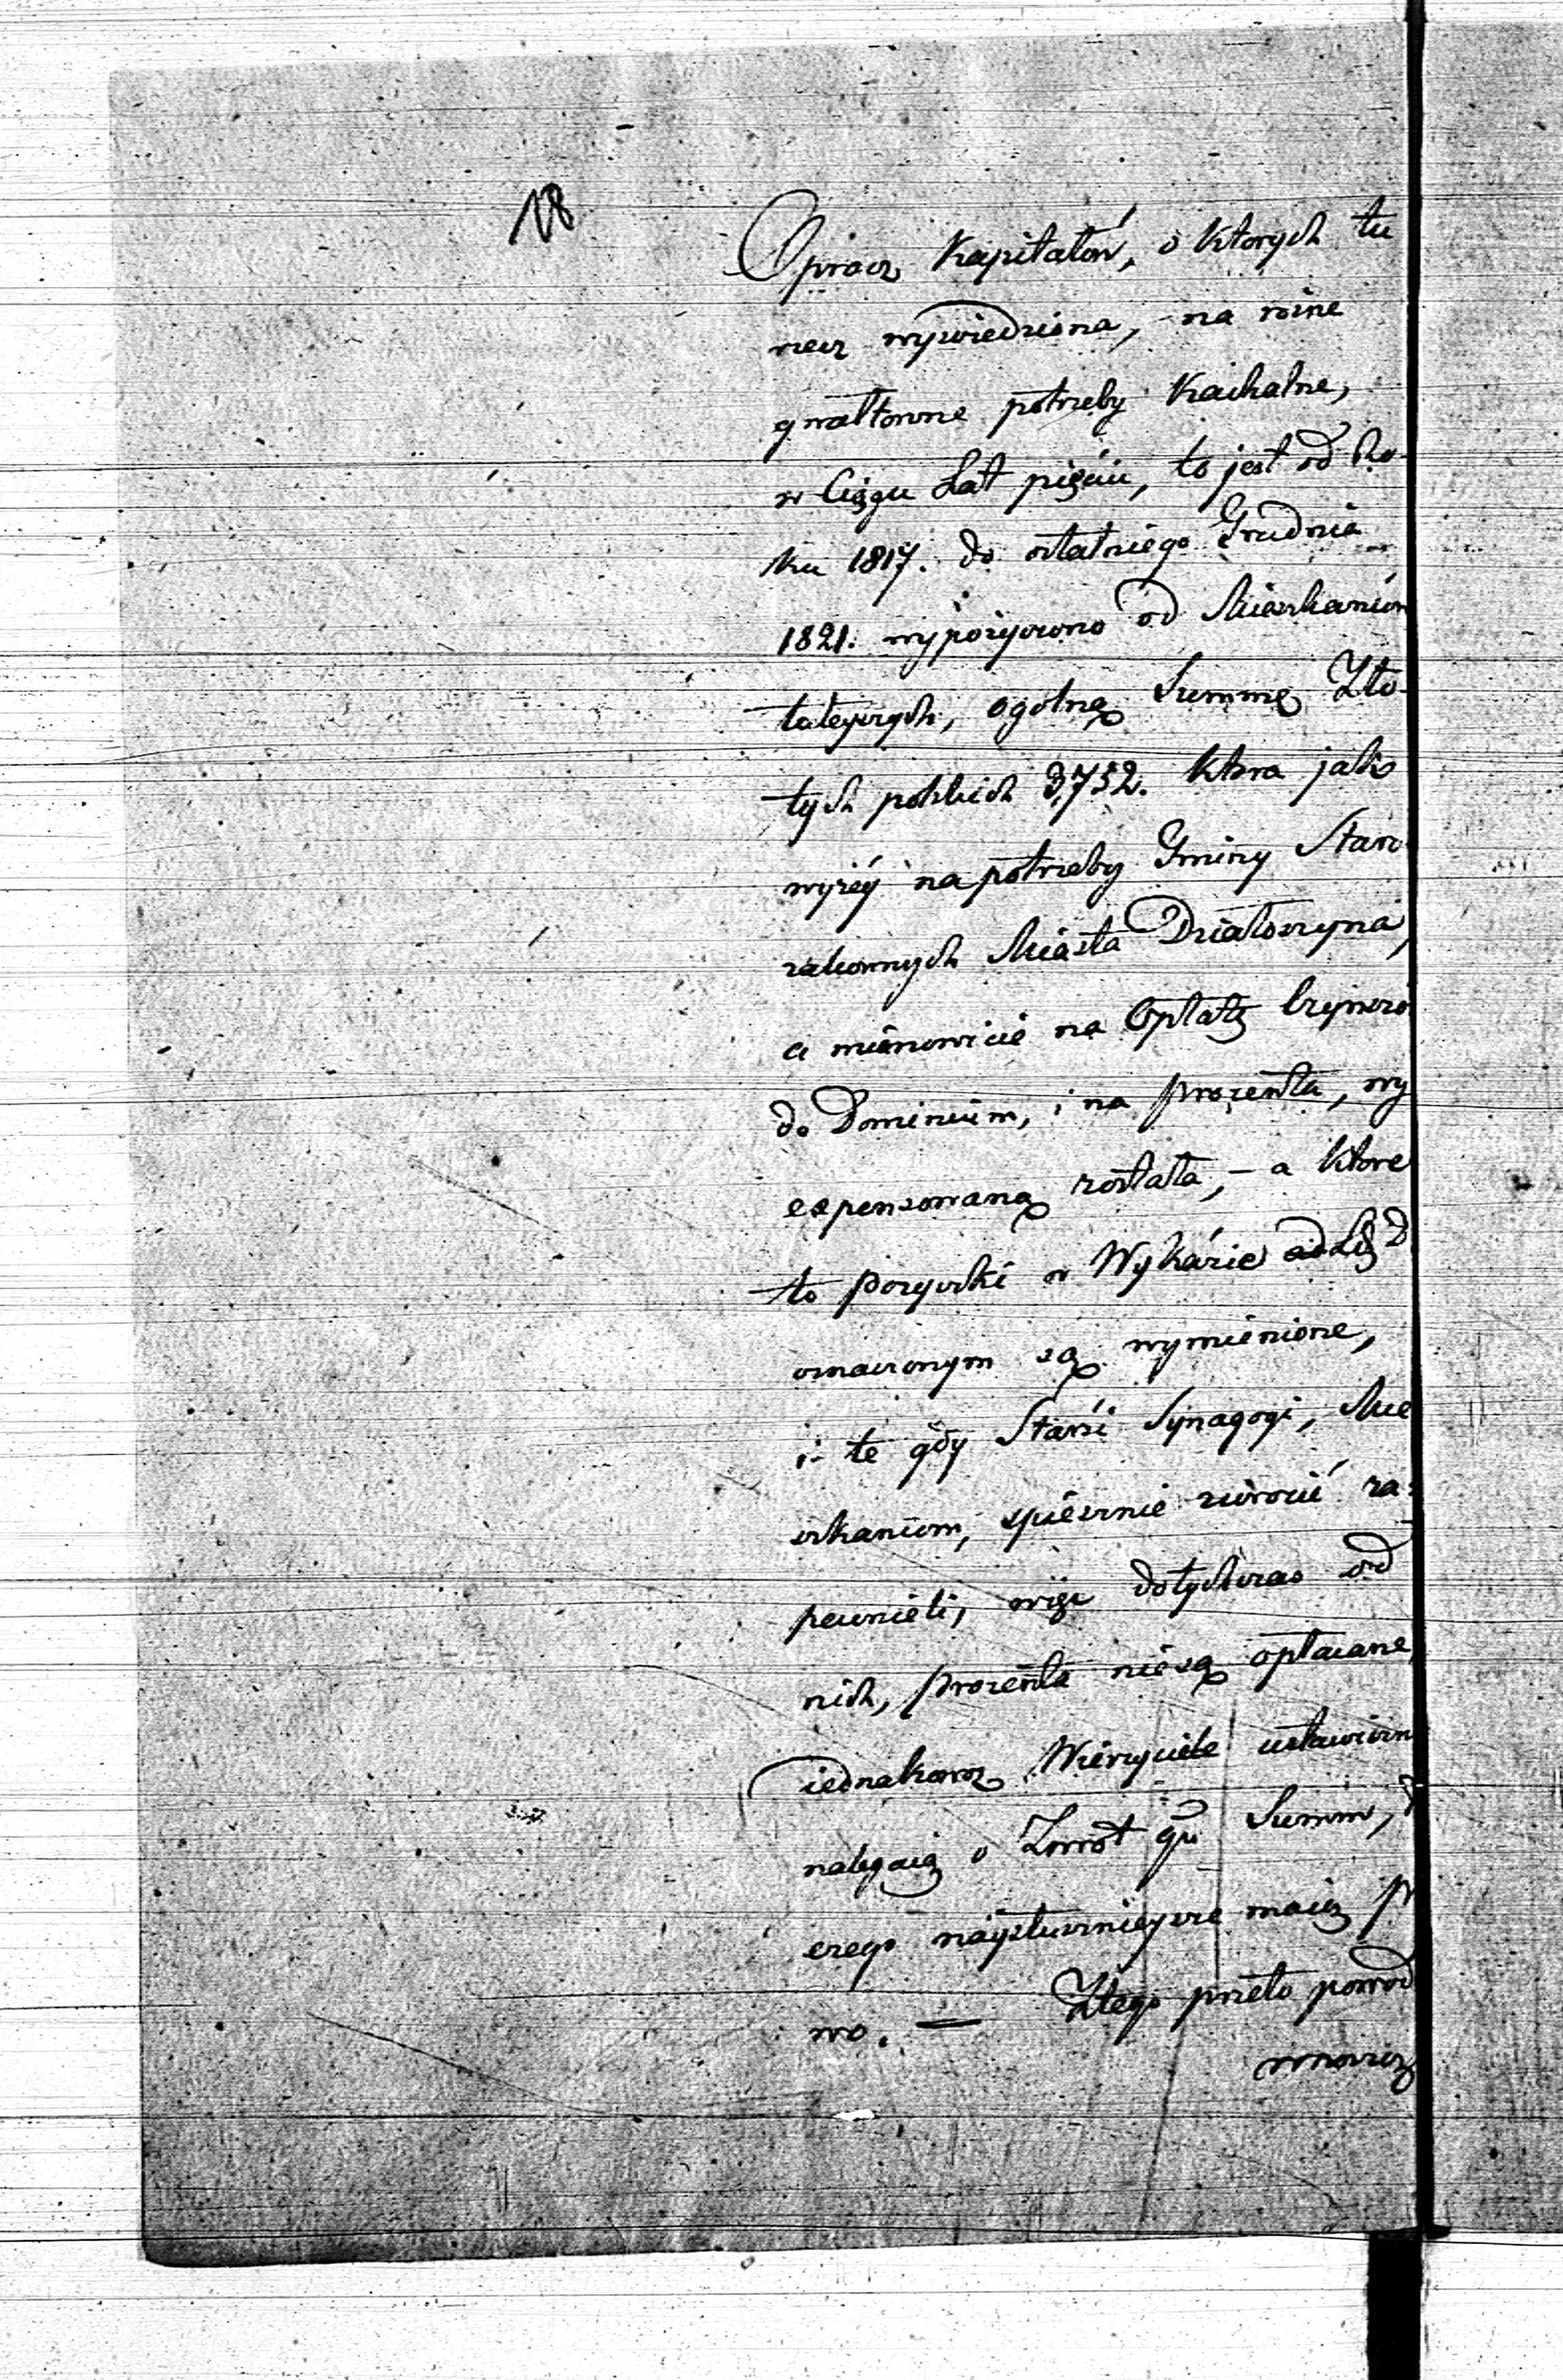 18
Oprocz Kapitałów, o ktorych tu
rzecz wywiedziona, na rózne
gwałtowne potrzeby Kachalne,
w Ciągu Lat pięciu, to jest od Ro-
ku 1817. do ostatniego Grudnia
1821. wypożyczono od Mieszkanców
tuteyszych, ogolną Summę Zło-
tych polskich 3,752. ktora jako
wyżéy na potrzeby Gminy Staro
zakonnych Miasta Działoszyna,
a mianowicie na Opłatę Czynszó
do Dominium, i na procenta, wy
expensowaną została, – a ktore
to pozyczki w Wykazie ad
oznaczonym są wymienione,
i te gdy Starsi Synagogi, Mie
szkancom, spiesznie zwrocić za-
pewnieli, więc dotychczas od
nich, procenta niesą opłacane
iednakowoz Wierzyciele ustawiczn
nalegaią o Zwrot qu Summ,
czego naysłusznieysze maią pr
wo. — Ztego przeto powod
wnosrzą